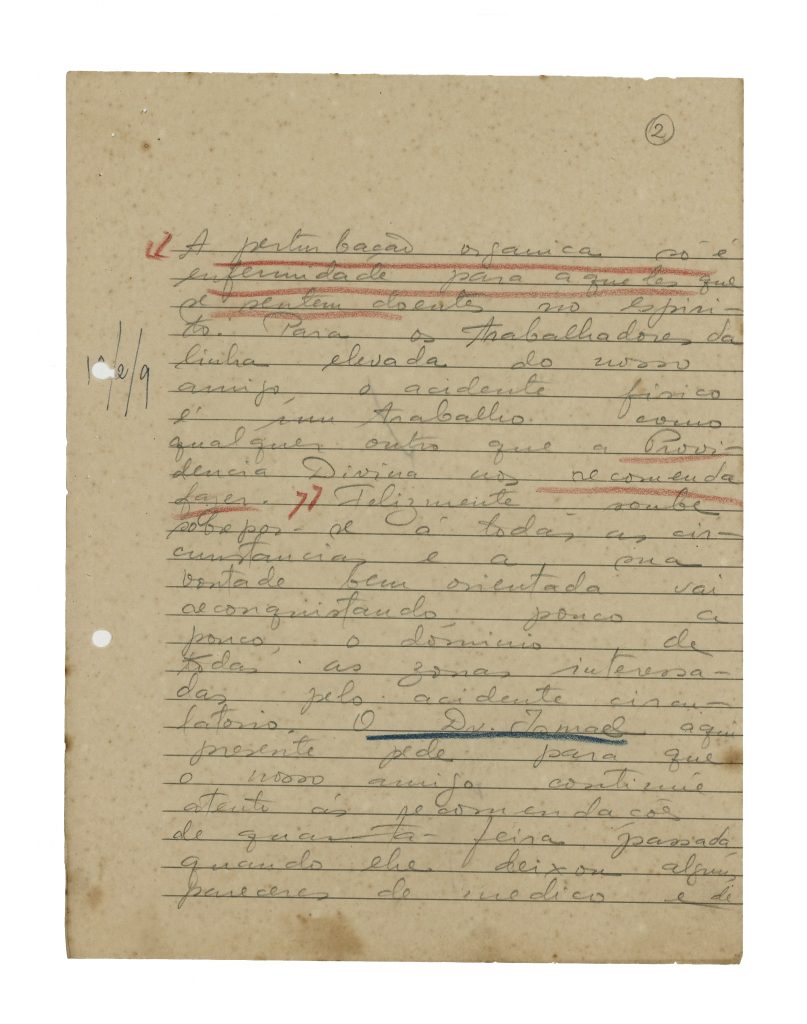 2
" A perturbação organica só é
enfermidade para aqueles que
se sentem doentes no espiri-
to. Para os trabalhadores da
linha elevada do nosso
amigo, o acidente fisico
é um trabalho como
qualquer outro que a Provi-
dencia Divina nos recomenda
fazer. " Felizmente soube
sobrepor-se á todas as cir-
cunstancias e a sua
vontade bem orientada vai
reconquistando, pouco a
pouco, o dominio de
todas as zonas interessa-
das pelo acidente circu-
latorio. O Dr. Ismael aqui
presente pede para que
o nosso amigo continúe
atento ás recomendações
de quarta-feira passada,
quando ele deixou alguns
pareceres de medico e de